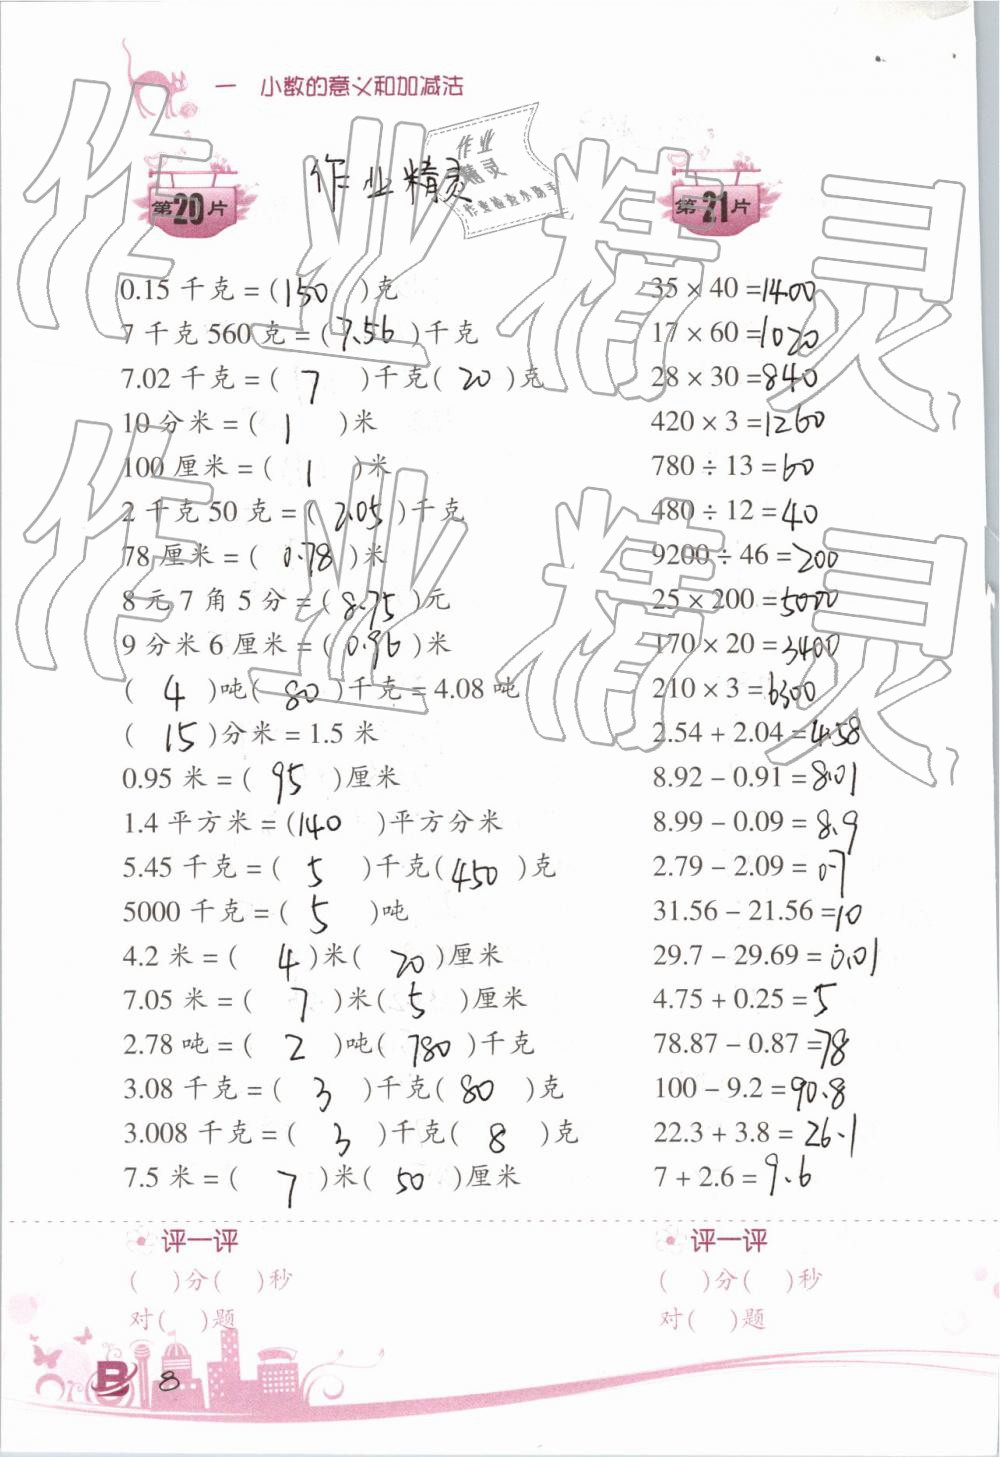 一 小数的意义和加减法
作业精灵
作业
精灵
作业检查小助手
第20片
0.15 千克 = (150)克
7 千克 560 克 = (7.56)千克
7.02 千克 = (7)千克(20)克
10 分米 = (1)米
100 厘米 = (1)米
2 千克 50 克 = (2.05)千克
78 厘米 = (0.78)米
8 元 7 角 5 分 = (8.75)元
9 分米 6 厘米 = (0.96)米
(4)吨(80)千克 = 4.08 吨
(15)分米 = 1.5 米
0.95 米 = (95)厘米
1.4 平方米 = (140)平方分米
5.45 千克 = (5)千克(450)克
5000 千克 = (5)吨
4.2 米 = (4)米(20)厘米
7.05 米 = (7)米(5)厘米
2.78 吨 = (2)吨(780)千克
3.08 千克 = (3)千克(80)克
3.008 千克 = (3)千克(8)克
7.5 米 = (7)米(50)厘米
评一评
( )分( )秒
对( )题
第21片
35 × 40 = 1400
17 × 60 = 1020
28 × 30 = 840
420 × 3 = 1260
780 ÷ 13 = 60
480 ÷ 12 = 40
9200 ÷ 46 = 200
25 × 200 = 5000
170 × 20 = 3400
210 × 3 = 6300
2.54 + 2.04 = 4.58
8.92 − 0.91 = 8.01
8.99 − 0.09 = 8.9
2.79 − 2.09 = 0.7
31.56 − 21.56 = 10
29.7 − 29.69 = 0.01
4.75 + 0.25 = 5
78.87 − 0.87 = 78
100 − 9.2 = 90.8
22.3 + 3.8 = 26.1
7 + 2.6 = 9.6
评一评
( )分( )秒
对( )题
B 8
作业精灵
作业精灵